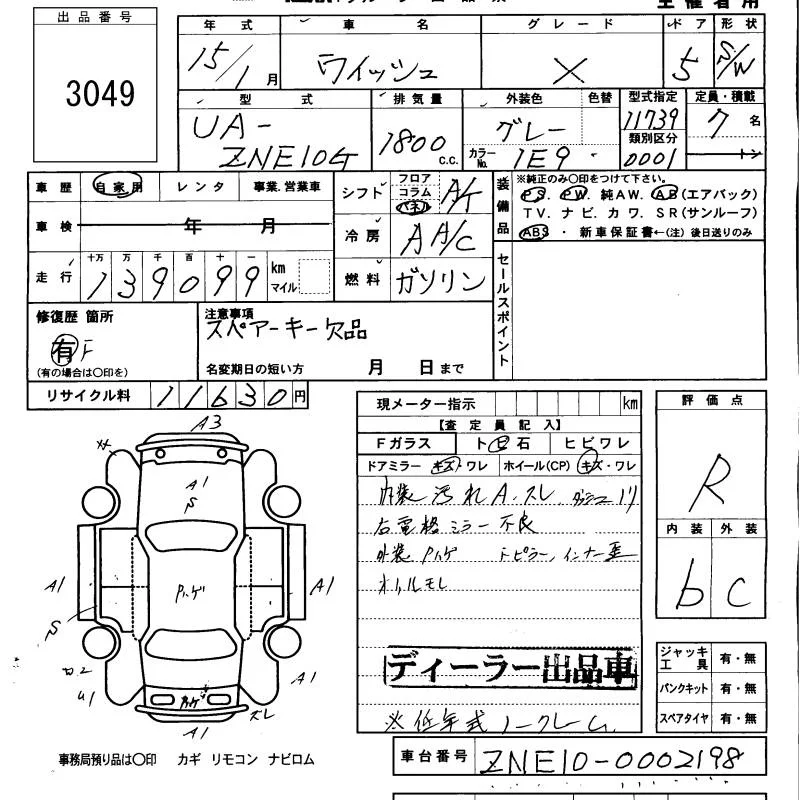 出品番号
3049
年式 車名 グレード ドア 形状
15/1月 ウイッシュ X 5 S/W
型式 排気量 外装色 色替 型式指定 定員・積載
UA-ZNE10G 1800 c.c. グレー カラーNo. 1E9 11739 類別区分 0001 7名 トン
車歴 自家用 レンタ 事業.営業車
車検 年 月
走行 十万 万 千 百 十 一
139099 km マイル
シフト フロア コラム パネル A/T
冷房 A A/C
燃料 ガソリン
装備品 ※純正のみ〇印をつけて下さい。
PS. PW. 純AW. AB(エアバック)
TV. ナビ. カワ. SR(サンルーフ)
ABS ・ 新車保証書←(注) 後日送りのみ
セールスポイント
修復歴 箇所
有 F
(有の場合は〇印を)
注意事項
スペアーキー欠品
名変期日の短い方 月 日まで
リサイクル料 11630円
現メーター指示 km
【査定員記入】
Fガラス ト・石 ヒビワレ
ドアミラー キズ・ワレ ホイール(CP) キズ・ワレ
内装 汚れ A.スレ.
右電格ミラー不良
外装 Pハゲ
オイルモレ
ディーラー出品車
※低年式ノークレーム.
評価点
R
内装 外装
b c
ジャッキ工具 有・無
パンクキット 有・無
スペアタイヤ 有・無
A3
A1
S
A1
A1
S
Pハゲ
A1
A1
ズレ
事務局預り品は〇印 カギ リモコン ナビロム
車台番号 ZNE10-0002198